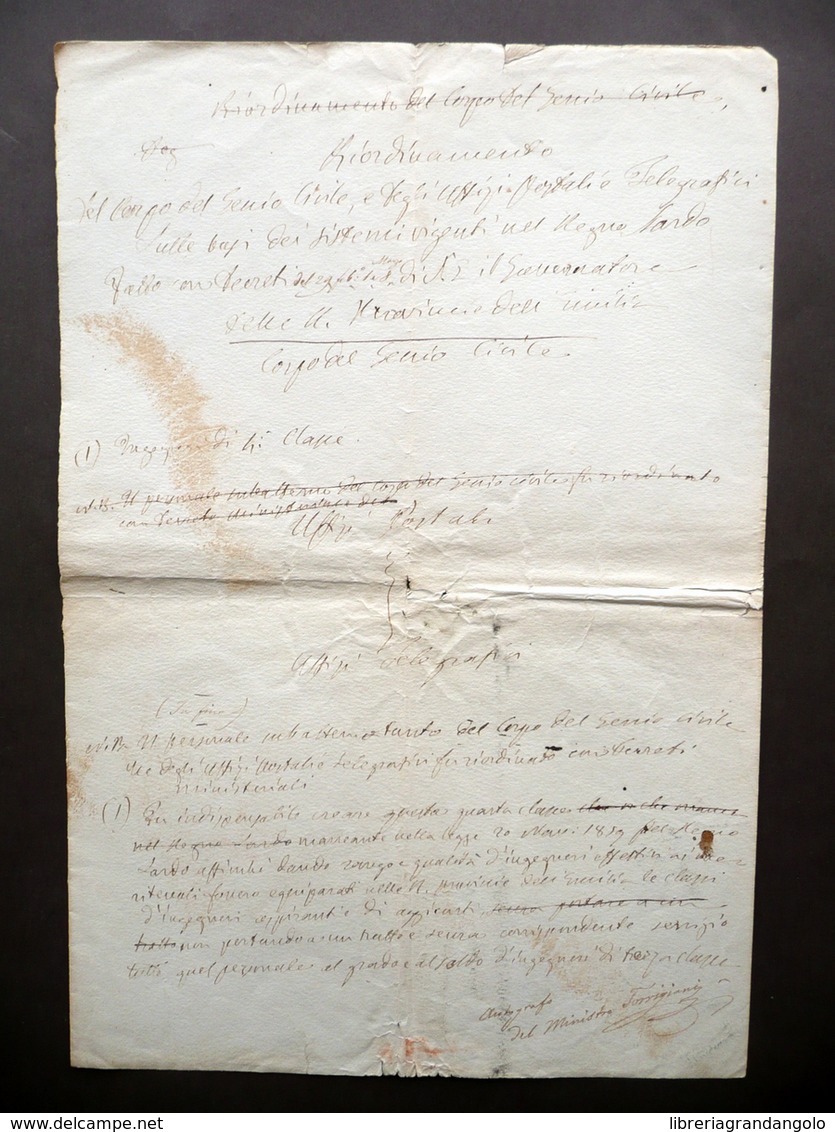 Riordinamento del Corpo del Genio Civile,
Riordinamento
del Corpo del Genio Civile, e degli Uffizi Postali e Telegrafici
sulle basi dei sistemi vigenti nel Regno Sardo
fatto con Decreti Marzo di S. E. il Governatore
delle R. Provincie dell'Emilia
Corpo del Genio Civile
(1) Ingegneri di 4ª Classe.
N.B. Il personale subalterno del Corpo del Genio Civile fu riordinato
con Decreto ministeriale del
Uffizi Postali
Uffizi Telegrafici
(In fine)
N.B. Il personale subalterno tanto del Corpo del Genio Civile
che degli Uffizi Postali e Telegrafici fu riordinato con Decreti
Ministeriali
(1) Fu indispensabile creare questa quarta classe
nel Regno Sardo mancante nella legge 20 Nov. 1859 del Regno
Sardo affinché dando rango e qualità d'ingegneri effettivi ai
fossero equiparati nelle R. provincie dell'Emilia le classi
d'ingegneri aspiranti e di applicati senza portare a un
tratto non portando a un tratto e senza corrispondente servizio
tutto quel personale al grado e al soldo d'ingegneri di terza classe
Autografo
del Ministro Torrigiani
delcampe.net
libreriagrandangolo